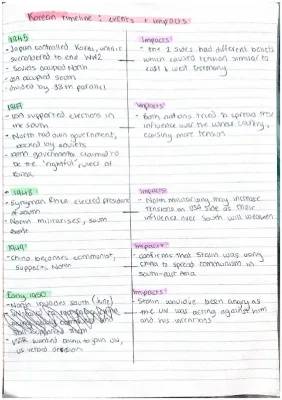 Korean timeline: events + impacts
1945
- Japan controlled Korea, which
surrendered to end WW2
- Soviets occupied North
- USA occupied south
- divided by 38th parallel
Impacts
- the 2 sides had different beliefs
which caused tension similar to
east & west Germany
1947
- USA supported elections in
the south
- North had own government,
backed by soviets
- both governments claimed to
be the 'rightful' rulers of
Korea
Impacts
- Both nations tried to spread their
influence over the whole country,
causing more tension
1948
- Syngman Rhee elected president
of south
- North militarises, south
Impacts
- North militarising may increase
tensions on USA side as their
influence over South will weaken
1949
- China becomes communist,
supports North
Impacts
- confirms that Stalin was using
china to spread communism in
south-east Asia
Early 1950
- North invades south (June)
- USSR wanted china to join UN,
us vetoed decision
Impacts
- Stalin would've been angry as
the UN was acting against him
and his intentions